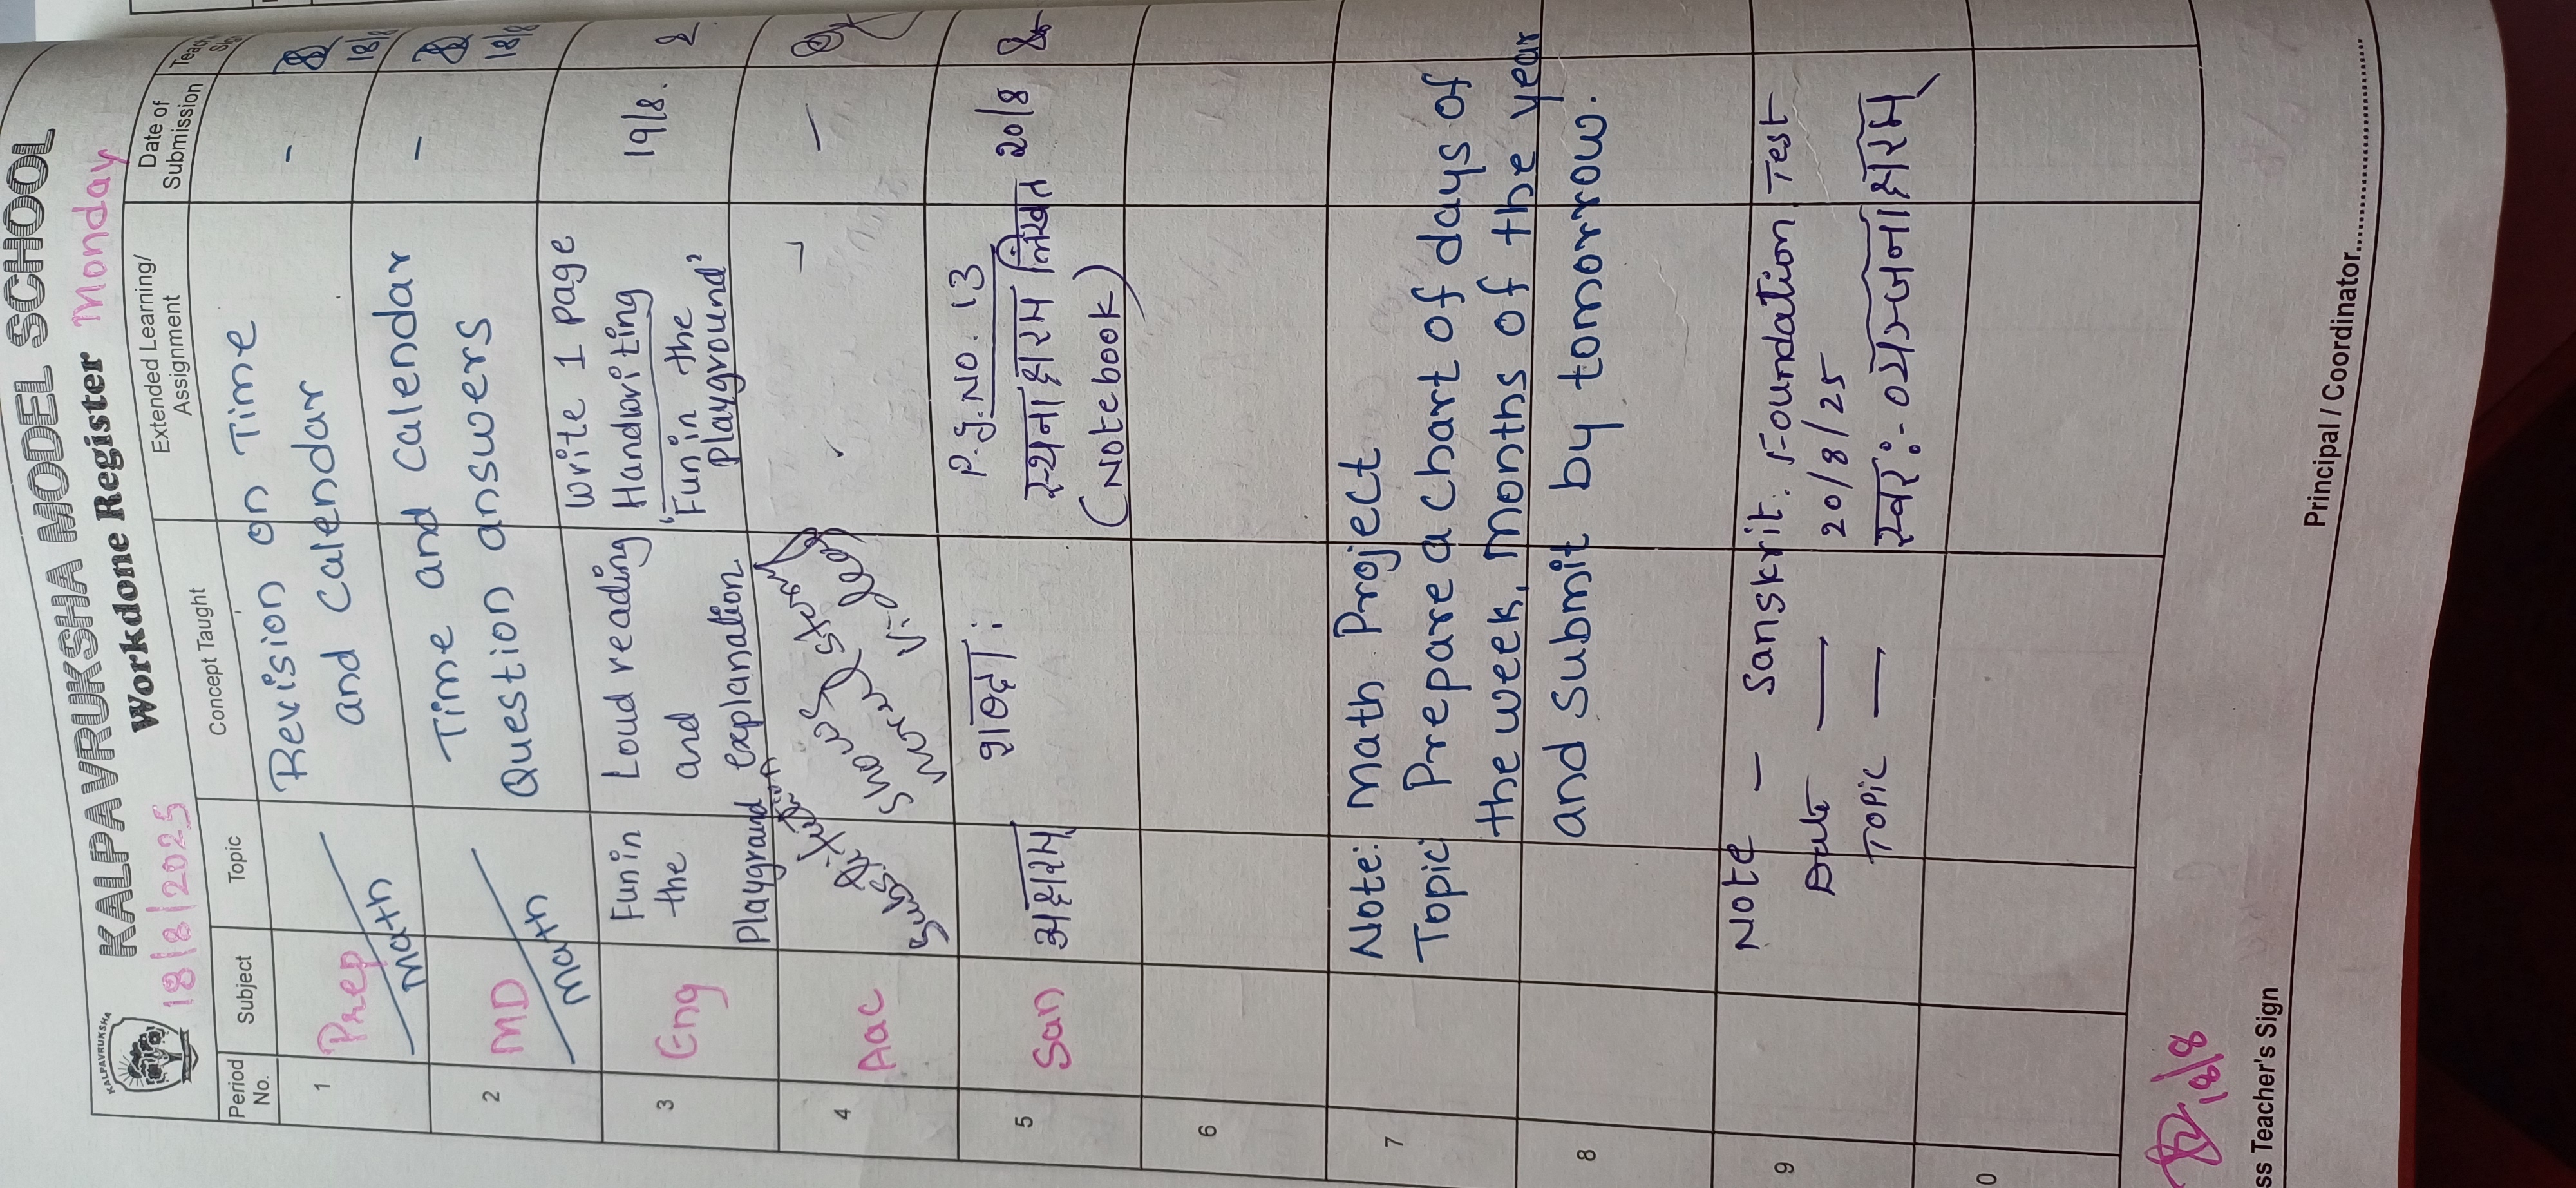 KALPAVRUKSHA
KALPAVRUKSHA MODEL SCHOOL
Workdone Register
18/8/2025
Monday
Period No.
Subject
Topic
Concept Taught
Extended Learning/
Assignment
Date of
Submission
1
Prep
Math
Revision on Time
and Calendar
-
18/8
2
MD
Math
Time and Calendar
Question answers
-
18/8
3
Eng
Fun in
the
Playground
Loud reading
and
explanation
Write 1 page
Handwriting
'Fun in the
Playground'
19/8.
4
AaC
5
San
शब्दा:
P.g. No. 13
(Notebook)
20/8
6
7
Note: Math Project
Topic: Prepare a chart of days of
the week, Months of the year
8
and submit by tomorrow.
9
Note - Sanskrit. Foundation Test
Date — 20/8/25
Topic —
0
18/8
ss Teacher's Sign
Principal / Coordinator